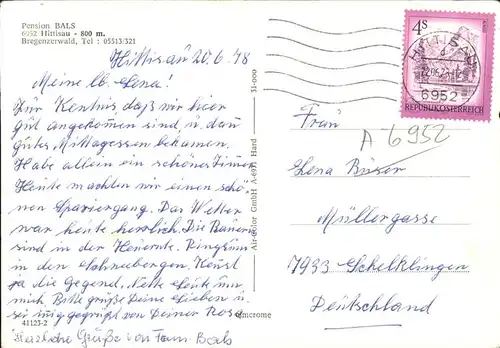 Pension BALS
6952 Hittisau - 800 m.
Bregenzerwald, Tel : 05513/321
Hittisau 20.6.78
Meine lb. Lena!
Zur Kentnis, daß wir hier
gut angekommen sind, u. dan
gutes Mittagessen bekamen.
Habe allein ein schönes Zimer
Heute machten wir einen schö-
nen Spaziergang. Das Wetter
war heute herrlich. Die Bauern
sind in der Heuernte. Ringsum
in den Schneebergen. Kenst
ja die Gegend. Nette Leute um
mich. Bitte grüße Deine Lieben u.
sei innig gegrüßt von Deiner Rosa
Herzliche Grüße von Fam. Bals
41123-2
Air-Color GmbH A-6971 Hard
51-000
4S
HITTISAU
6952
REPUBLIK ÖSTERREICH
A 6952
Frau
Lena
Müllergasse
7933 Schelklingen
Deutschland